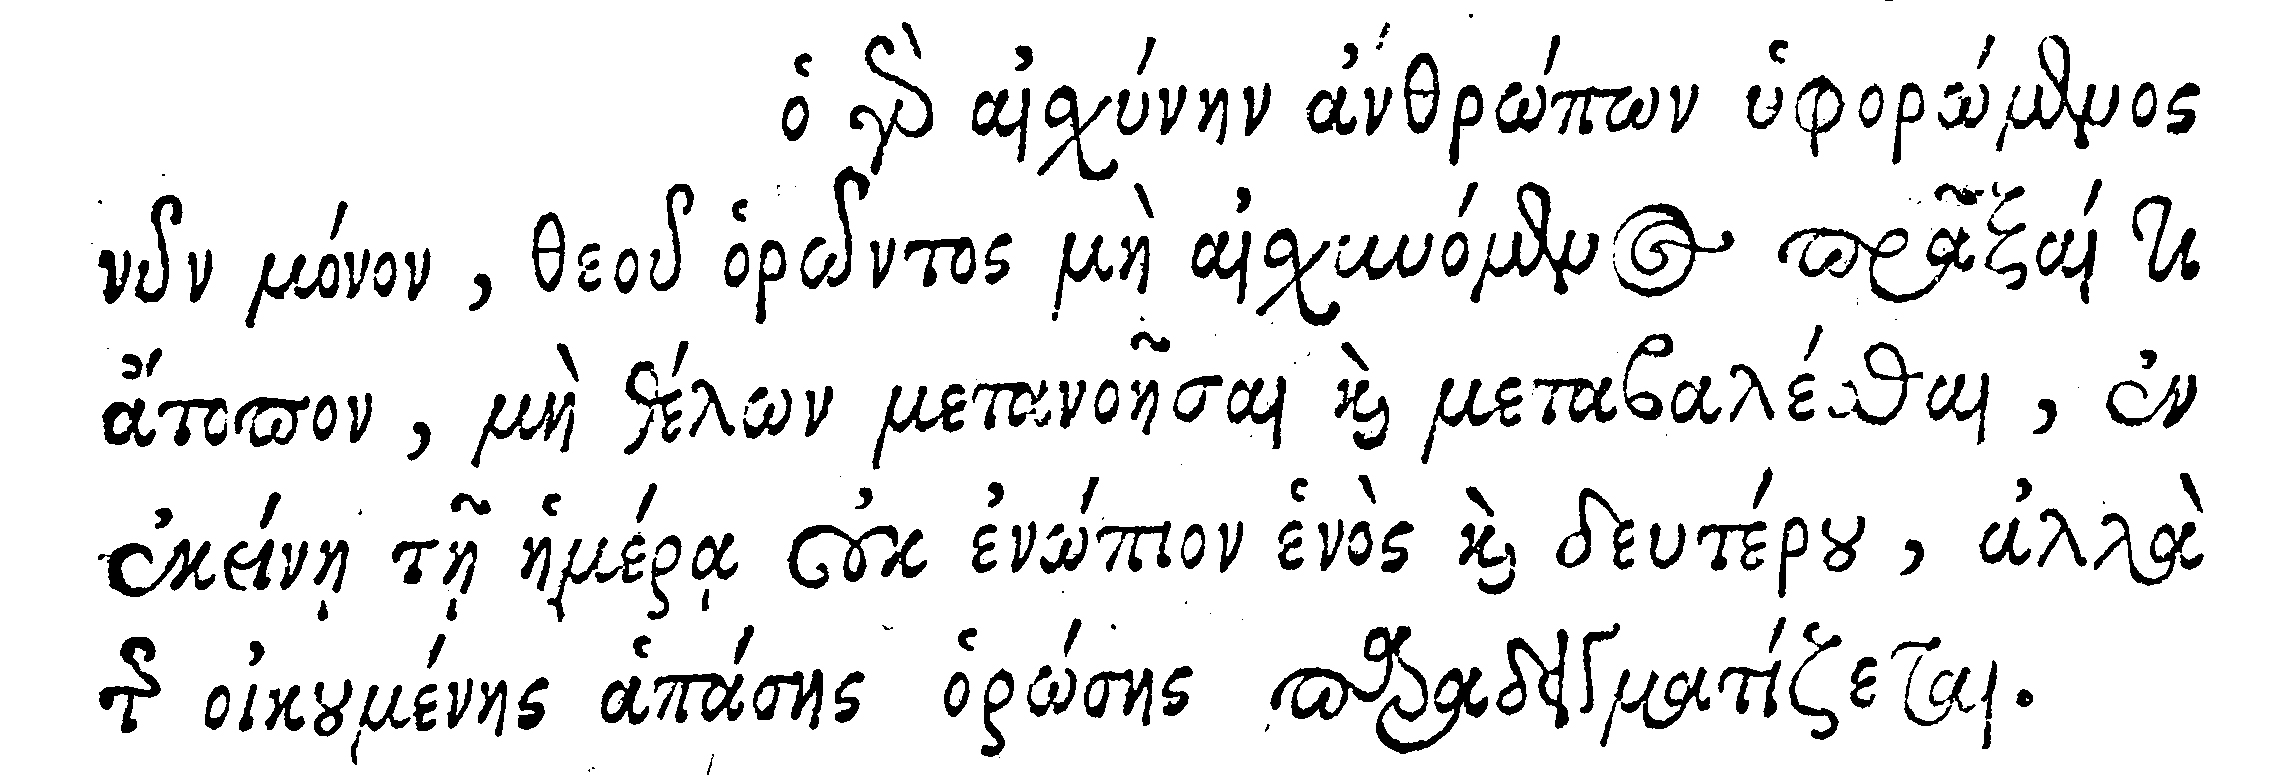 ὁ γὰρ αἰσχύνην ἀνθρώπων ὑφορώμενος
νῦν μόνον, θεοῦ ὁρῶντος μὴ αἰσχυνόμενος πρᾶξαί τι
ἄτοπον, μὴ θέλων μετανοῆσαι καὶ μεταβαλέσθαι, ἐν
ἐκείνῃ τῇ ἡμέρᾳ οὐκ ἐνώπιον ἑνὸς καὶ δευτέρου, ἀλλὰ
τῆς οἰκουμένης ἁπάσης ὁρώσης παραδειγματίζεται.